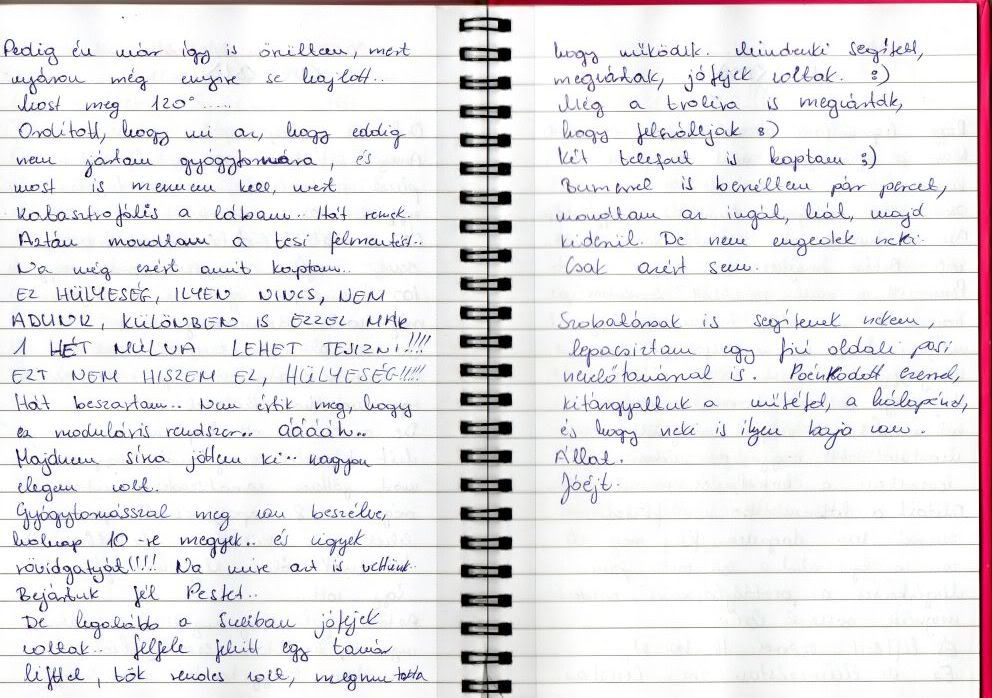 Pedig én már így is örültem, mert
nyáron még ennyire se hajlott..
Most meg 120°.....
Ordított, hogy mi az, hogy eddig
nem jártam gyógytornára, és
most is mennem kell, mert
katasztrofális a lábam.. Hát remek.
Aztán mondtam a tesi felmentést..
Na még ezért amit kaptam..
EZ HÜLYESÉG, ILYEN NINCS, NEM
ADUNK, KÜLÖNBEN IS EZZEL MÁR
1 HÉT MÚLVA LEHET TESIZNI!!!!
EZT NEM HISZEM EL, HÜLYESÉG!!!!!
Hát beszartam.. Nem értik meg, hogy
ez moduláris rendszer.. áááááh..
Majdnem sírva jöttem ki.. nagyon
elegem volt.
Gyógytornásszal meg van beszélve,
holnap 10-re megyek.. és vigyek
rövidgatyát!!!! Na mire azt is vettünk..
Bejártuk fél Pestet..
De legalább a suliban jófejek
voltak.. felfele felvitt egy tanár
lifttel, tök rendes volt, megmutatta
hogy működik. Mindenki segített,
megvártak, jófejek voltak. :)
Még a trolira is megvárták,
hogy felszálljak :)
Két telefont is kaptam ;)
is benéztem pár percet,
mondtam az ingát, hát, majd
kiderül. De nem engedlek neki.
Csak azért sem.
Szobatársak is segítenek nekem,
lepacsiztam egy fiú oldali pasi
nevelőtanárral is. Poénkodott ezerrel,
kitárgyaltuk a műtétet, a hálapénzt,
és hogy neki is ilyen baja van.
Állat.
Jóéjt.